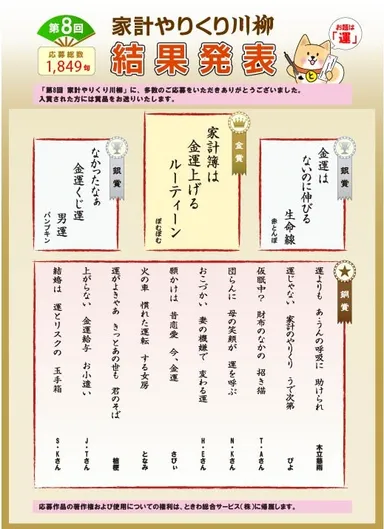 第8回
応募総数
1,849句
家計やりくり川柳
結果発表
お題は
「運」
「第8回 家計やりくり川柳」に、多数のご応募をいただきありがとうございました。
入賞された方には賞品をお送りいたします。
金賞
家計簿は
金運上げる
ルーティーン
ぽむぽむ
銀賞
金運は
ないのに伸びる
生命線
赤とんぼ
銀賞
なかったなぁ
金運くじ運
男運
パンプキン
銅賞
運よりも あ・うんの呼吸に 助けられ
木立慈雨
運じゃない 家計のやりくり うで次第
ぴよ
仮眠中? 財布のなかの 招き猫
T・Aさん
団らんに 母の笑顔が 運を呼ぶ
N・Kさん
おこづかい 妻の機嫌で 変わる運
H・Eさん
願かけは 昔恋愛 今、金運
さぴぃ
火の車 慣れた運転 する女房
となみ
運がよきゃ きっとあの世も 君のそば
桔梗
上がらない 金運給与 お小遣い
J・Tさん
結婚は 運とリスクの 玉手箱
S・Kさん
応募作品の著作権および使用についての権利は、ときわ総合サービス(株)に帰属します。